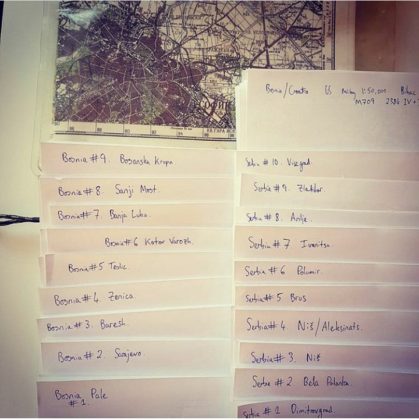 Bosnia/Croatia US Military 1:50,000 Bihac
M709 2586 IV
Bosnia #9. Bosanska Krupa
Bosnia #8 Sanji Most.
Bosnia #7. Banja Luka
Bosnia #6 Kotor Varozh.
Bosnia #5 Teslic.
Bosnia #4. Zenica
Bosnia #3. Baresh.
Bosnia #2. Sarajevo
Bosnia Pale
#1.
Serbia #10. Visegrad.
Serbia #9. Zlatibor
Serbia #8. Arilje.
Serbia #7 Ivanitsa
Serbia #6 Polumir.
Serbia #5 Brus
Serbia #4 Niš/Aleksinats.
Serbia #3. Niš
Serbia #2. Bela Palanka.
Serbia #1 Dimitrovgrad.